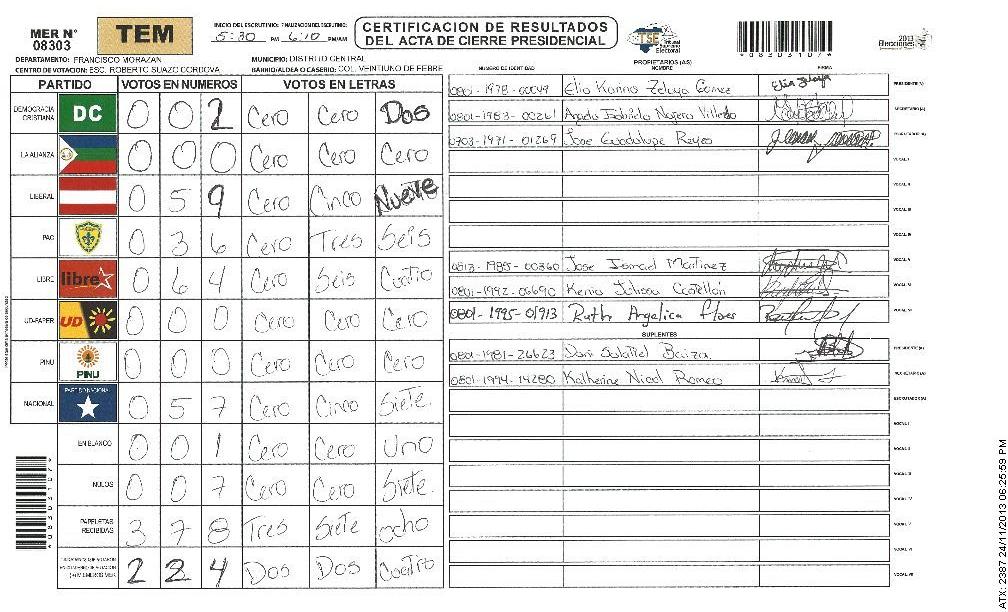 MER N° 08303
TEM
INICIO DEL ESCRUTINIO: FINALIZACION DEL ESCRUTINIO:
5:30 PM 6:10 PM/AM
CERTIFICACION DE RESULTADOS
DEL ACTA DE CIERRE PRESIDENCIAL
TSE Tribunal Supremo Electoral
*08303107*
2013 Elecciones
DEPARTAMENTO: FRANCISCO MORAZAN
MUNICIPIO: DISTRITO CENTRAL
CENTRO DE VOTACION: ESC. ROBERTO SUAZO CORDOVA
BARRIO/ALDEA O CASERIO: COL. VEINTIUNO DE FEBRE
PARTIDO VOTOS EN NUMEROS VOTOS EN LETRAS
DEMOCRACIA CRISTIANA DC 0 0 2 Cero Cero Dos
LA ALIANZA 0 0 0 Cero Cero Cero
LIBERAL 0 5 9 Cero Cinco Nueve
PAC 0 3 6 Cero Tres Seis
LIBRE libre 0 6 4 Cero Seis Cuatro
UD-FAPER UD 0 0 0 Cero Cero Cero
PINU PINU 0 0 0 Cero Cero Cero
NACIONAL PARTIDO NACIONAL 0 5 7 Cero Cinco Siete
EN BLANCO 0 0 1 Cero Cero Uno
NULOS 0 0 7 Cero Cero Siete
PAPELETAS RECIBIDAS 3 7 8 Tres Siete ocho
2 2 4 Dos Dos Cuatro
PROPIETARIOS (AS)
NUMERO DE IDENTIDAD NOMBRE FIRMA
0801-1978-00049 Elia Karina Zelaya Gomez PRESIDENTE(A)
0801-1983-00261 SECRETARIO (A)
0703-1971-01269 Jose Guadalupe Reyes ESCRUTADOR (A)
VOCAL I
VOCAL II
VOCAL III
VOCAL IV
0813-1985-00360 Jose Ismael Martinez VOCAL V
0801-1992-06690 Kenia Julissa Castellón VOCAL VI
0801-1995-01913 Ruth Angelica Flores VOCAL VII
SUPLENTES
0801-1981-26623 PRESIDENTE(A)
0801-1994-14280 Katherine Nicol Romero SECRETARIO(A)
ESCRUTADOR(A)
VOCAL I
VOCAL II
VOCAL III
VOCAL IV
VOCAL V
VOCAL VI
VOCAL VII
*08303107*
ATX: 2387 24/11/2013 06:25:59 PM